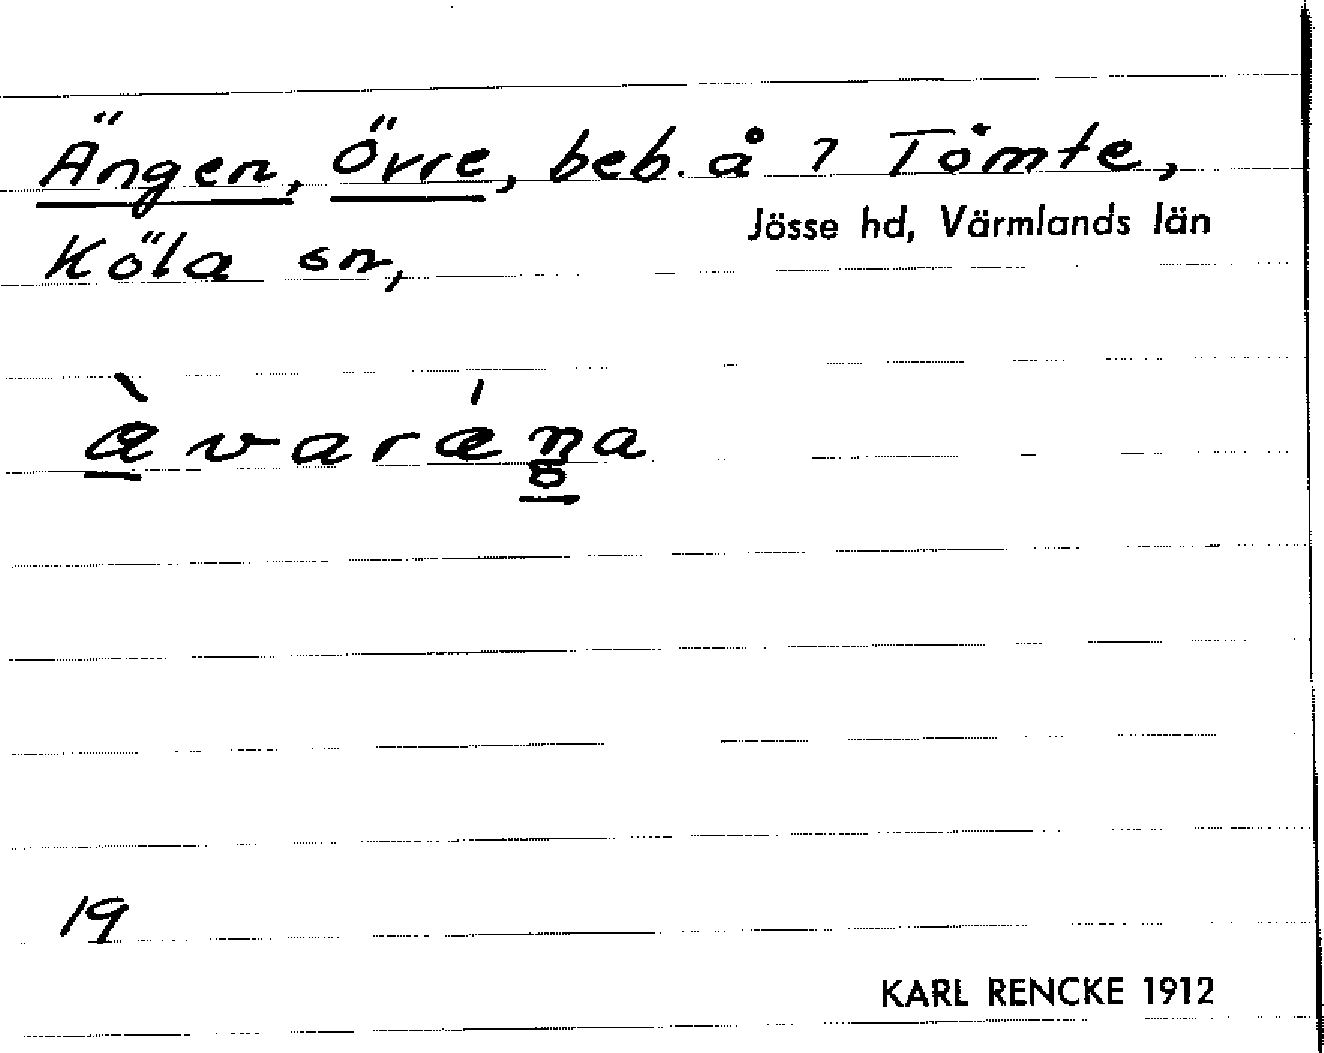 Ängen, Övre, beb. å 7 Tomte,
Jösse hd, Värmlands län
Köla sn,
æ̀varǽnga
19
KARL RENCKE 1912